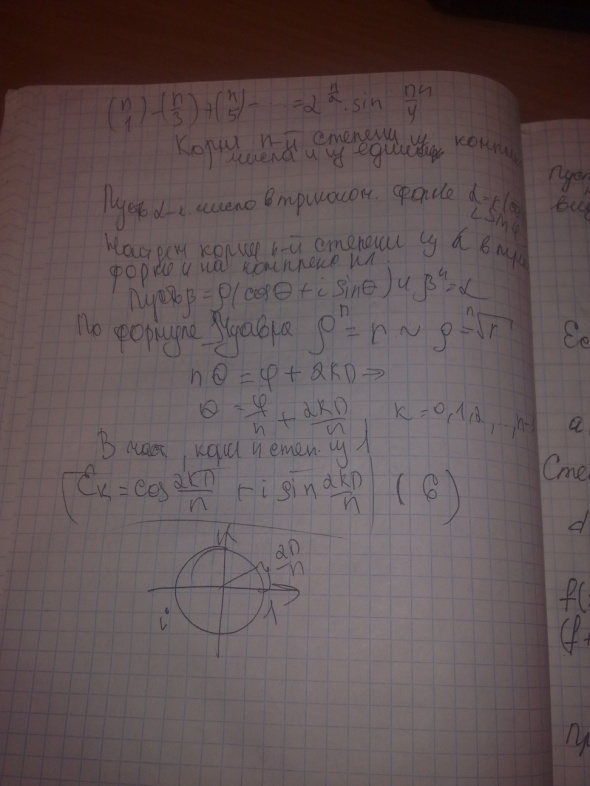 (n 1) - (n 3) + (n 5) - ... = 2^(n/2) · sin nπ/4
Корни n-й степени из компл
числа и из единицы
Пусть α - к. число в тригон. форме α = r(cos
Найдем корни n-й степени из α в три
форме и на комплекс пл.
Пусть β = ρ(cosθ + i sinθ) и βⁿ = α
По формуле Муавра ρⁿ = r ~ ρ = ⁿ√r
nθ = φ + 2kπ ⇒
θ = φ/n + 2kπ/n k = 0, 1, 2, ..., n-
В част, корни n степ. из 1
Ɛk = cos 2kπ/n + i sin 2kπ/n (6)
2π/n
1
i
Ес
а
Степ
d
f(
(f +
Пр